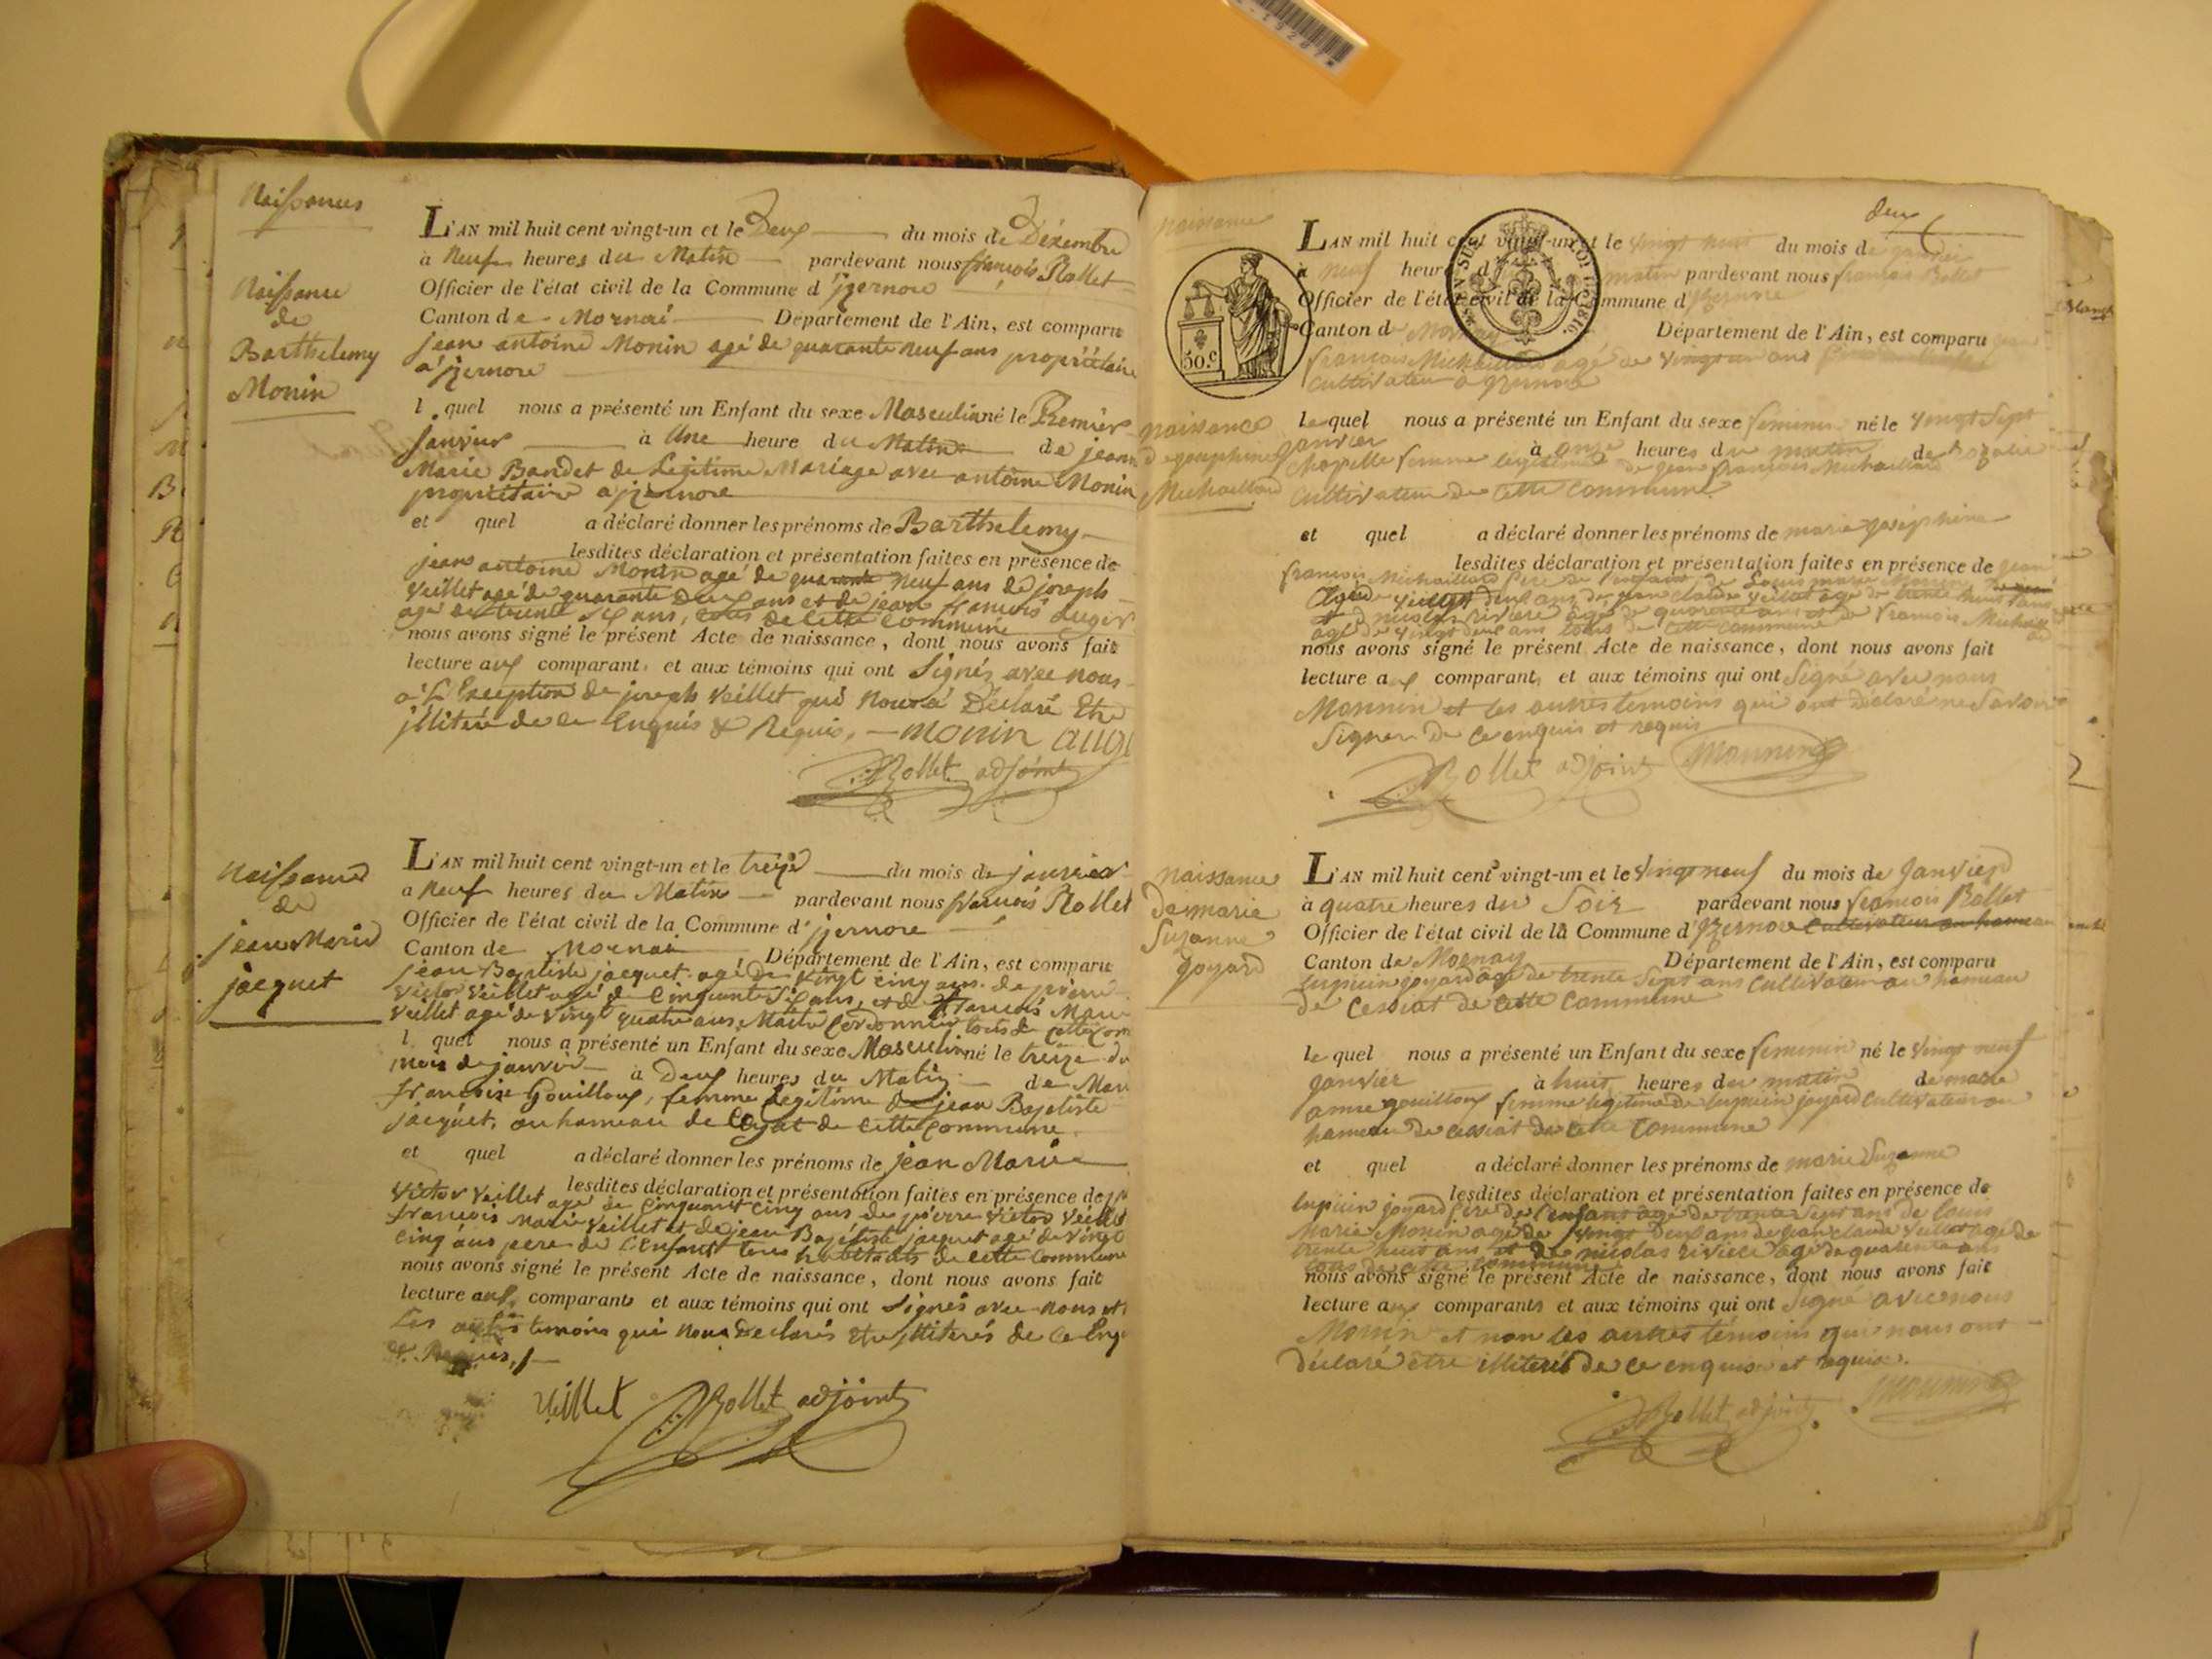 Naissances
Naissance
de
Barthelemy
Monin
L'AN mil huit cent vingt-un et le Deux du mois de Décembre
à Neuf heures du Matin pardevant nous françois Rollet
Officier de l'état civil de la Commune d'jzernore
Canton de Mornai Département de l'Ain, est comparu
jean antoine Monin agé de quarante neuf ans propriétaire
à jzernore
l quel nous a présenté un Enfant du sexe Masculin né le Premier
Janvier à Une heure du Matin de jeann
Marie Bandet de Legitime Mariage avec antoine Monin
propriétaire a jzernore
et quel a déclaré donner les prénoms de Barthelemy
lesdites déclaration et présentation faites en présence de
jean antoine Monin agé de quarante neuf ans de joseph
Veillet agé de quarante Deux ans et de jean francois auger
agé de trente six ans, tous de cette commune
nous avons signé le présent Acte de naissance, dont nous avons fait
lecture aux comparant, et aux témoins qui ont Signés avec nous
a L'Exception de joseph Veillet qui Nous a Déclaré Etre
jlliteré de ce Enquis & Requis, monin aug
Rollet adjoint
Naissance
de
jean Marie
jacquet
L'AN mil huit cent vingt-un et le treize du mois de janvier
a Neuf heures du Matin pardevant nous francois Rollet
Officier de l'état civil de la Commune d'jzernore
Canton de Mornai Département de l'Ain, est comparu
jean Baptiste jacquet agé de Vingt cinq ans de pierre
Victor Veillet agé de Cinquante Six ans, et de francois Marie
Veillet agé de Vingt quatre ans, Maitre Cordonnier tous de cette Com
l quel nous a présenté un Enfant du sexe Masculin né le treize du
mois de janvier à Deux heures du Matin de Mari
francoise Gouilloux, femme Legitime de jean Baptiste
jacquet, au hameau de Ceyssiat de cette Commune
et quel a déclaré donner les prénoms de jean Marie
lesdites déclaration et présentation faites en présence de
Victor Veillet agé de Cinquante cinq ans de pierre Victor Veillet
francois Marie Veillet et de jean Baptiste jacquet agé de Vingt
cinq ans pere de L'Enfant tous habitants de cette Commune
nous avons signé le présent Acte de naissance, dont nous avons fait
lecture aux comparants et aux témoins qui ont Signés avec nous et
Les autres temoins qui Nous Declarés Etre jlliterés de ce Enq
& Requis,
Veillet Rollet adjoint
deux
naissance
50.c
L'AN mil huit cent vingt-un et le vingt du mois de janvier
à neuf heures du matin pardevant nous francois Rollet
Officier de l'état civil de la Commune d'jzernore
Canton de Mornay Département de l'Ain, est comparu jean
francois Michaillard agé de vingt ans
cultivateur a jzernore
naissance
de josephine
Michaillard
le quel nous a présenté un Enfant du sexe feminin né le vingt sept
janvier à onze heures du matin de rozalie
Chapelle femme legitime de jean francois Michaillard
cultivateur de cette commune
et quel a déclaré donner les prénoms de marie joséphine
lesdites déclaration et présentation faites en présence de jean
francois Michaillard pere de l'enfant de Louis marie Monin
agé de vingt deux ans de jean claude veillet agé de trente huit ans
et de nicolas riviere agé de quarente ans et de francois Michaill
agé de vingt deux ans tous de cette commune
nous avons signé le présent Acte de naissance, dont nous avons fait
lecture aux comparants et aux témoins qui ont Signé avec nous
Monnin et les autres temoins qui ont déclaré ne Savoir
Signer de ce enquis et requis
Rollet adjoint Monnin
naissance
de marie
Suzanne
Goyard
L'AN mil huit cent vingt-un et le vingt neuf du mois de Janvier
à quatre heures du Soir pardevant nous francois Rollet
Officier de l'état civil de la Commune d'jzernore cultivateur au hameau
Canton de Mornay Département de l'Ain, est comparu
lupicin joyard agé de trente Sept ans cultivateur au hameau
de Cessiat de cette Commune
le quel nous a présenté un Enfant du sexe feminin né le Vingt neuf
janvier à huit heures du matin de marie
anne gouilloux femme legitime de lupicin joyard cultivateur au
hameau de cessiat de cette Commune
et quel a déclaré donner les prénoms de marie Suzanne
lesdites déclaration et présentation faites en présence de
lupicin joyard pere de l'enfant agé de trente Sept ans de louis
Marie Monin agé de Vingt Deux ans de jean claude Veillet agé de
trente huit ans et de nicolas riviere agé de quarente ans
tous de cette commune
nous avons signé le présent Acte de naissance, dont nous avons fait
lecture aux comparants et aux témoins qui ont Signé avec nous
Monin et non les autres témoins qui nous ont
déclaré être illiterés de ce enquis et requis.
Rollet adjoint Monnin